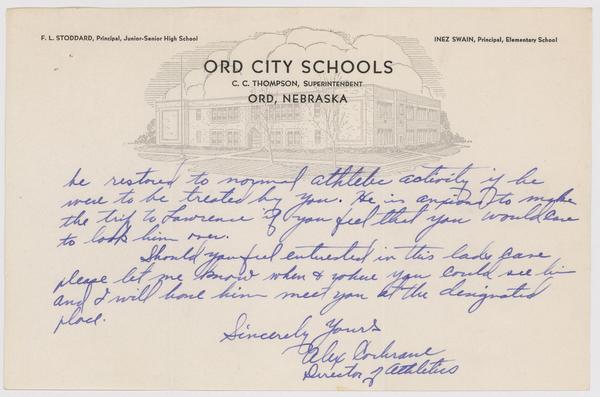 F. L. STODDARD, Principal, Junior-Senior High School
INEZ SWAIN, Principal, Elementary School
ORD CITY SCHOOLS
C. C. THOMPSON, SUPERINTENDENT
ORD, NEBRASKA
be restored to normal athletic activity if he
were to be treated by you. He is anxious to make
the trip to Lawrence if you feel that you would care
to look him over.
Should you feel entrested in this lads case
please let me know when & where you could see him
and I will have him meet you at the designated
place.
Sincerely Yours
Alex Cochrane
Director of Athletics